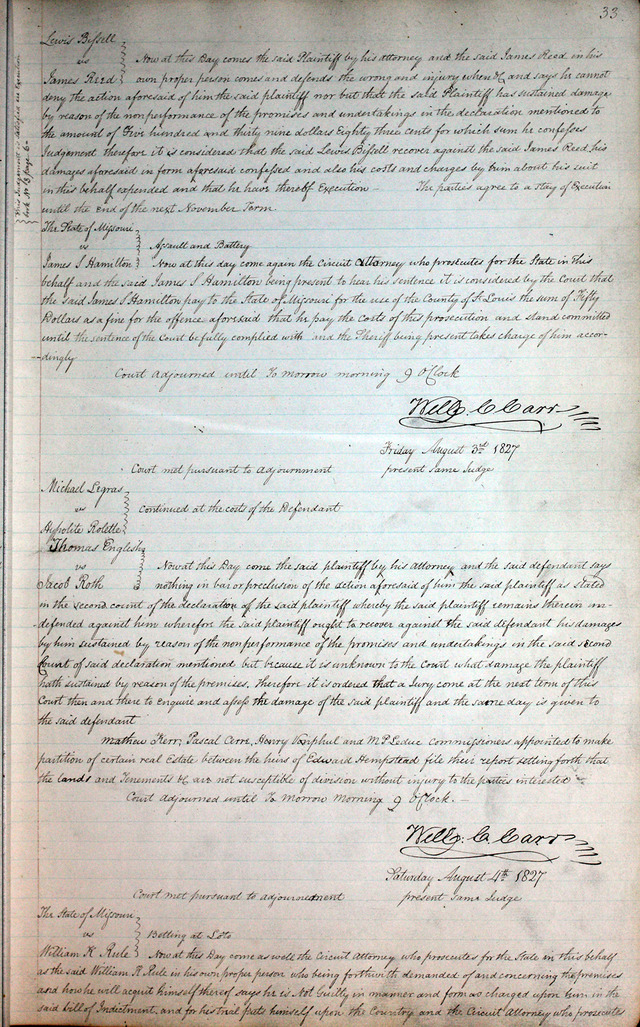 33
Lewis Bissell
vs
James Reed
Now at this Day comes the said Plaintiff by his attorney and the said James Reed in his
own proper person comes and defends the wrong and injury when &c and says he cannot
deny the action aforesaid of him the said plaintiff nor but that the said Plaintiff has sustained damage
by reason of the nonperformance of the promises and undertakings in the declaration mentioned to
the amount of Five hundred and thirty nine dollars Eighty three cents for which sum he confesses
Judgement therefore it is considered that the said Lewis Bissell recover against the said James Reed, his
damages aforesaid in form aforesaid confessed and also his costs and charges by him about his suit
in this behalf expended and that he have thereof Execution — The parties agree to a stay of Execution
until the end of the next November Term
This Judgement is satisfied see Execution
book No page
The State of Missouri
vs
James S Hamilton
Assault and Battery
Now at this day come again the Circuit Attorney who prosecutes for the State in this
behalf and the said James S Hamilton being present to hear his sentence it is considered by the Court that
the said James S Hamilton pay to the State of Missouri for the use of the County of St Louis the sum of Fifty
Dollars as a fine for the offence aforesaid that he pay the costs of this prosecution and stand committed
until the sentence of the Court be fully complied with and the Sheriff being present takes charge of him accor-
-dingly
Court Adjourned until To morrow morning 9 O'Clock
Will C Carr
Friday August 3rd 1827
Court met pursuant to adjournment present same Judge
Michael Legras
vs
Hypolite Rolette
Continued at the costs of the Defendant
Thomas English
vs
Jacob Roth
Now at this Day come the said plaintiff by his Attorney and the said defendant says
nothing in bar or preclusion of the action aforesaid of him the said plaintiff as stated
in the second count of the declaration of the said plaintiff whereby the said plaintiff remains therein un-
defended against him wherefore the said plaintiff ought to recover against the said defendant his damages
by him sustained by reason of the nonperformance of the promises and undertakings in the said second
Count of said declaration mentioned but because it is unknown to the Court what damage the plaintiff
hath sustained by reason of the premises, therefore it is ordered that a Jury come at the next term of this
Court then and there to enquire and assess the damage of the said plaintiff and the same day is given to
the said defendant
Mathew Kerr, Pascal Cerre, Henry Vonphul and M P Leduc Commissioners appointed to make
partition of certain real Estate between the heirs of Edward Hempstead file their report setting forth that
the lands and Tenements &c are not susceptible of division without injury to the parties interested
Court Adjourned until To Morrow Morning 9 O'Clock. —
Will C. Carr
Saturday August 4th 1827
Court met pursuant to adjournment present same Judge
The State of Missouri
vs
William K Rule
Betting at Loto
Now at this Day come as well the Circuit Attorney who prosecutes for the State in this behalf
as the said William K Rule in his own proper person who being forthwith demanded of and concerning the premises
and how he will acquit himself thereof says he is Not Guilty in manner and form as charged upon him in the
said bill of Indictment, and for his trial puts himself upon the Country and the Circuit Attorney who prosecutes